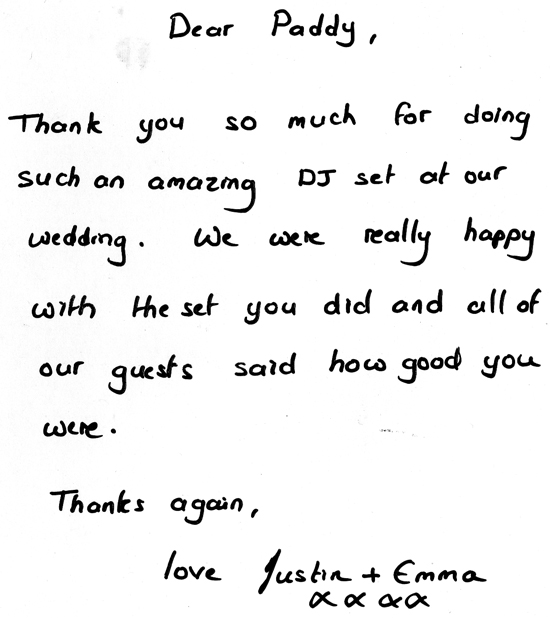 Dear Paddy,
Thank you so much for doing
such an amazing DJ set at our
wedding. We were really happy
with the set you did and all of
our guests said how good you
were.
Thanks again,
love Justin + Emma
x x x x